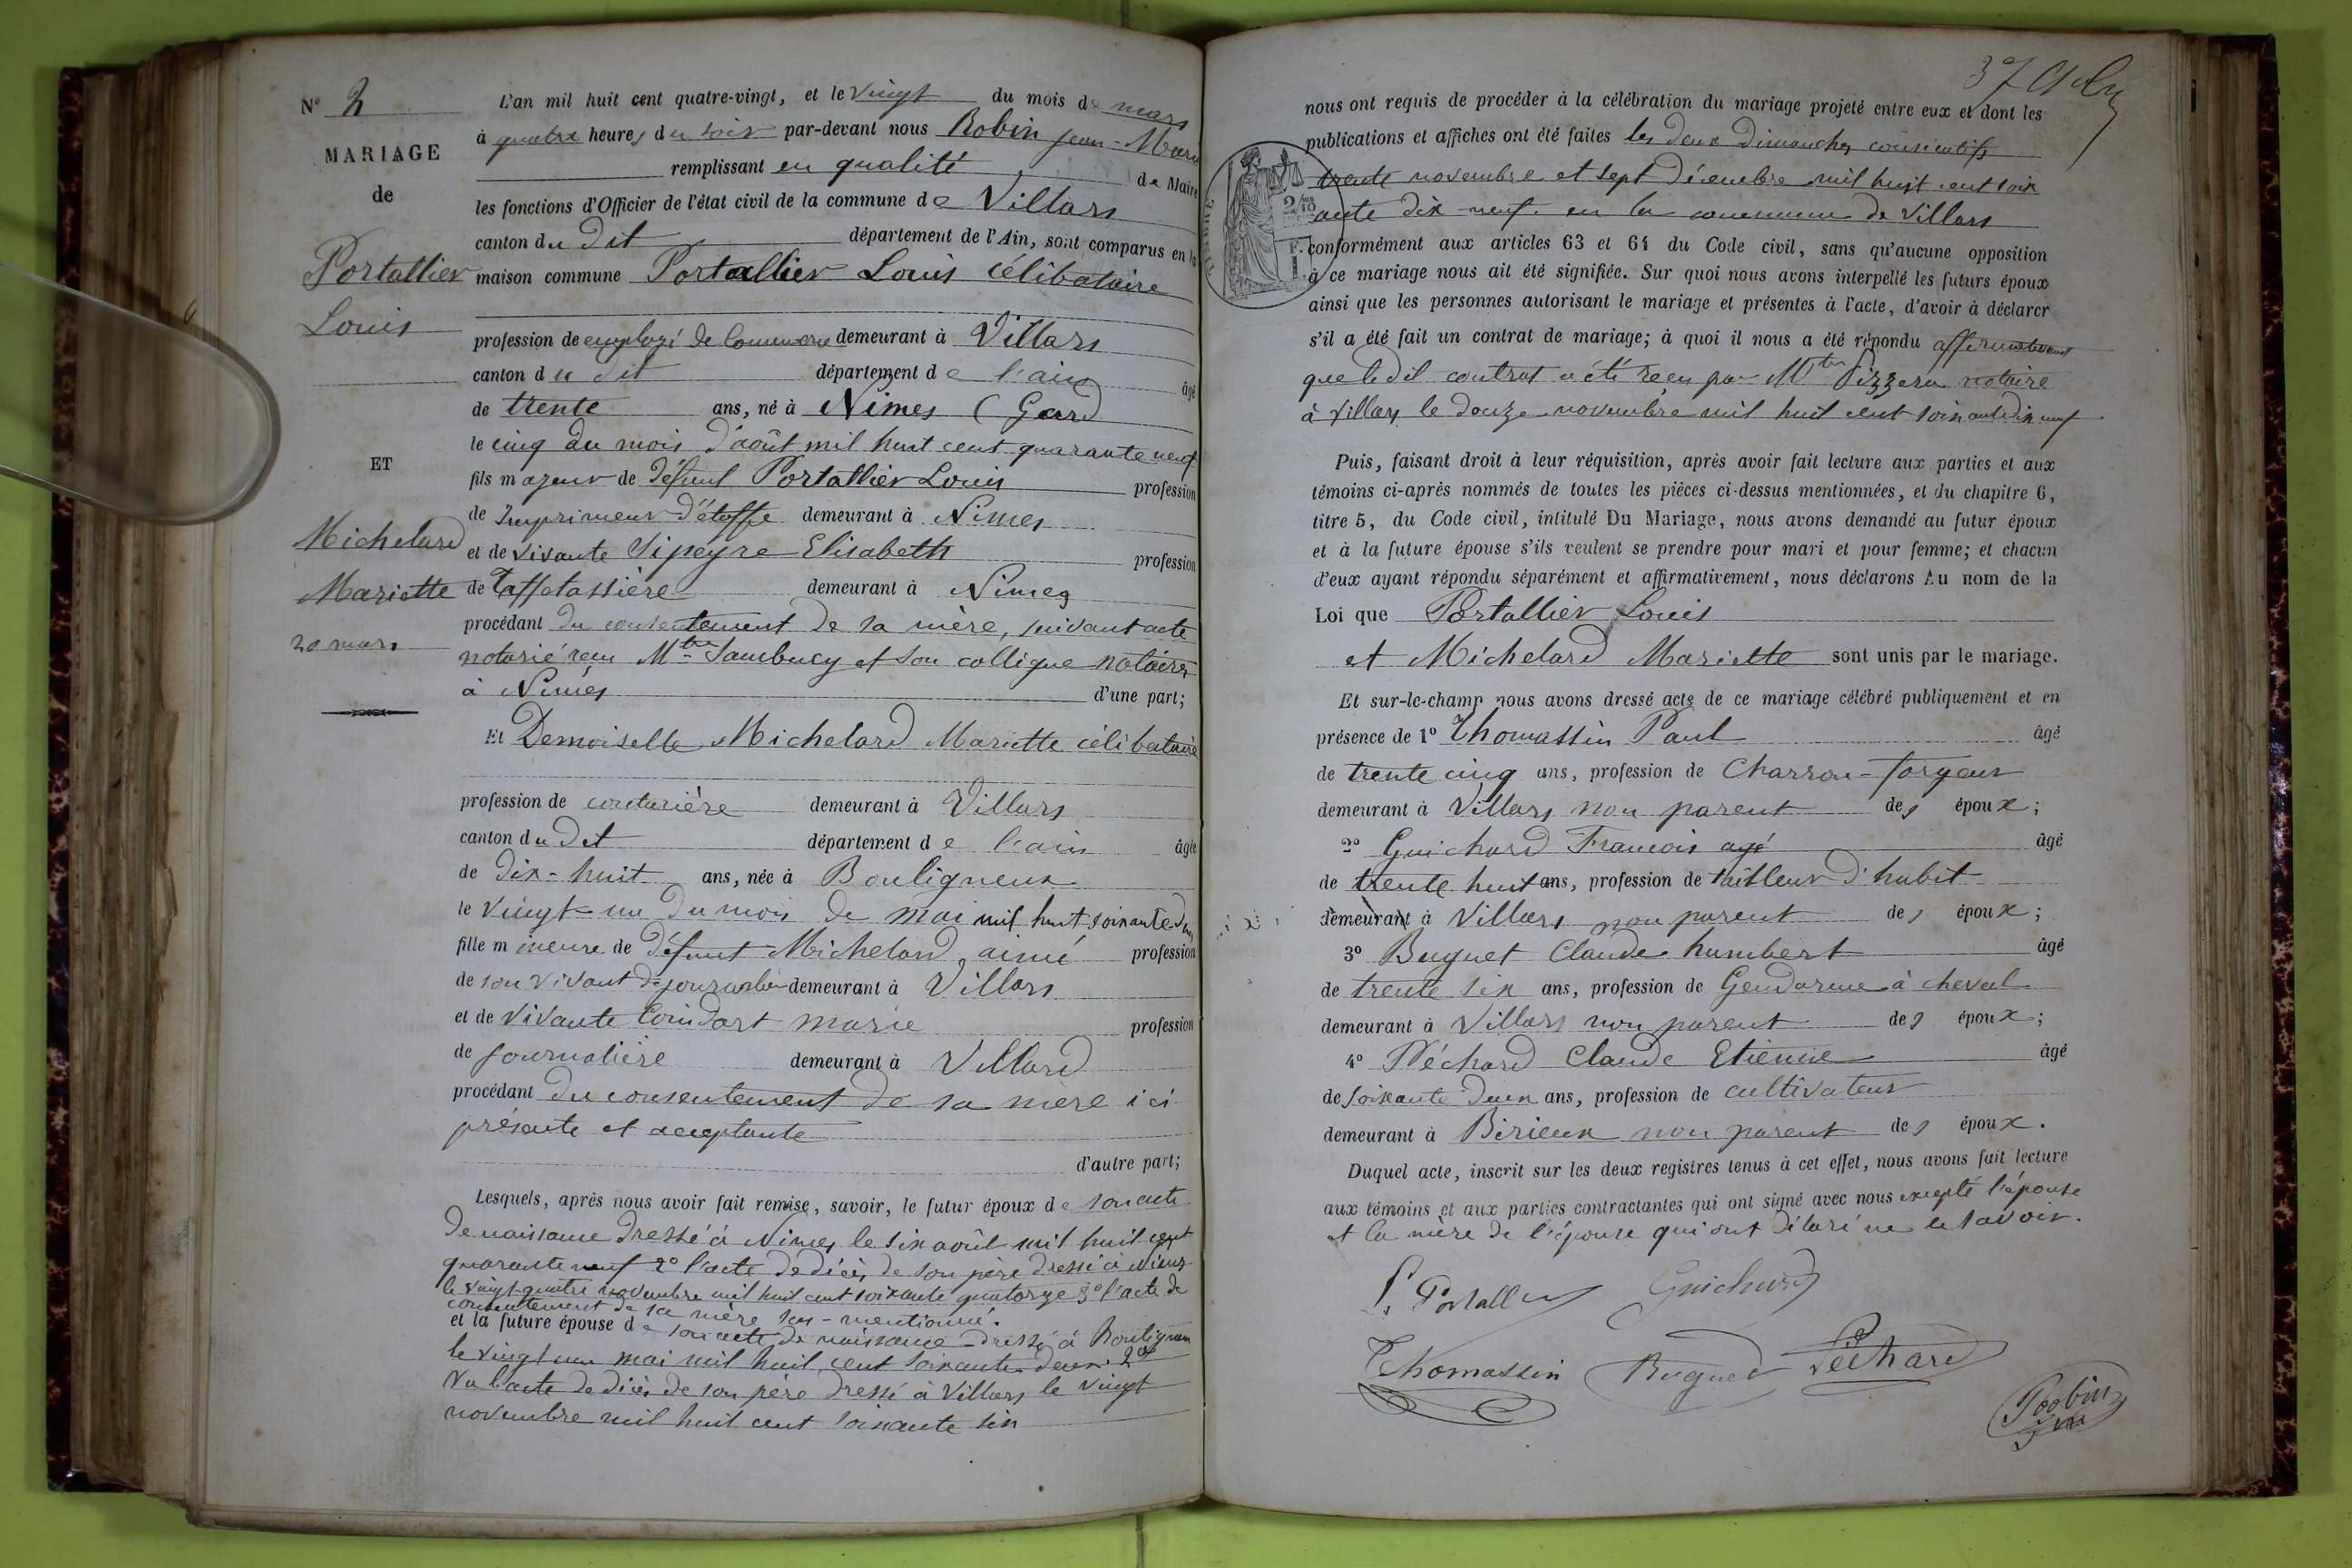 N° 2
MARIAGE
de
Portallier
Louis
ET
Michelard
Mariette
20 mars
L'an mil huit cent quatre-vingt, et le Vingt du mois de mars
à quatre heures du soir par-devant nous Robin Jean-Marie
remplissant en qualité de Maire
les fonctions d'Officier de l'état civil de la commune de Villars
canton du dit département de l'Ain, sont comparus en la
maison commune Portallier Louis célibataire
profession de employé de Commerce demeurant à Villars
canton du dit département de l'ain âgé
de trente ans, né à Nimes (Gard
le cinq du mois d'août mil huit cent quarante neuf
fils majeur de défunt Portallier Louis profession
de Imprimeur d'étoffe demeurant à Nimes
et de vivante Sipeyre Elisabeth profession
de Taffetassière demeurant à Nimes
procédant du consentement de sa mère, suivant acte
notarié reçu Mtre Sambucy et son collègue notaires
à Nimes d'une part;
Et Demoiselle Michelard Mariette célibataire
profession de couturière demeurant à Villars
canton du dit département de l'ain âgée
de dix-huit ans, née à Bouligneux
le vingt un du mois de mai mil huit soixante deux
fille mineure de défunt Michelard aimé profession
de son vivant de journalier demeurant à Villars
et de vivante Coindart marie profession
de journalière demeurant à Villard
procédant du consentement de sa mère ici
présente et acceptante
d'autre part;
Lesquels, après nous avoir fait remise, savoir, le futur époux de son acte
de naissance dressé à Nimes le six août mil huit cent
quarante neuf 2° l'acte de décès de son père dressé à Nimes
le vingt-quatre novembre mil huit cent soixante quatorze 3° l'acte de
consentement de sa mère sus-mentionné.
et la future épouse de son acte de naissance dressé à Bouligneux
le vingt un mai mil huit cent soixante deux 2°
Vu l'acte de décès de son père dressé à Villars le vingt
novembre mil huit cent soixante six
37
nous ont requis de procéder à la célébration du mariage projeté entre eux et dont les
publications et affiches ont été faites les deux Dimanches consécutifs
trente novembre et sept décembre mil huit cent soix
ante dix-neuf en la commune de Villars
conformément aux articles 63 et 64 du Code civil, sans qu'aucune opposition
à ce mariage nous ait été signifiée. Sur quoi nous avons interpellé les futurs époux
ainsi que les personnes autorisant le mariage et présentes à l'acte, d'avoir à déclarer
s'il a été fait un contrat de mariage; à quoi il nous a été répondu affirmativement
que ledit contrat a été reçu par Mtre Pizzera notaire
à Villars le douze novembre mil huit cent soixante dix neuf
Puis, faisant droit à leur réquisition, après avoir fait lecture aux parties et aux
témoins ci-après nommés de toutes les pièces ci-dessus mentionnées, et du chapitre 6,
titre 5, du Code civil, intitulé Du Mariage, nous avons demandé au futur époux
et à la future épouse s'ils veulent se prendre pour mari et pour femme; et chacun
d'eux ayant répondu séparément et affirmativement, nous déclarons Au nom de la
Loi que Portallier Louis
et Michelard Mariette sont unis par le mariage.
Et sur-le-champ nous avons dressé acte de ce mariage célébré publiquement et en
présence de 1° Thomassin Paul âgé
de trente cinq ans, profession de Charron-forgeur
demeurant à Villars non parent des époux;
2° Guichard François agé âgé
de trente huit ans, profession de tailleur d'habit
demeurant à Villars non parent des époux;
3° Buguet Claude humbert âgé
de trente six ans, profession de Gendarme à cheval
demeurant à Villars non parent des époux;
4° Péchard Claude Etienne âgé
de soixante deux ans, profession de cultivateur
demeurant à Birieux non parent des époux.
Duquel acte, inscrit sur les deux registres tenus à cet effet, nous avons fait lecture
aux témoins et aux parties contractantes qui ont signé avec nous excepté l'épouse
et la mère de l'épouse qui ont déclaré ne le savoir.
L. Portallier Guichard
Thomassin Buguet Péchard
Robin